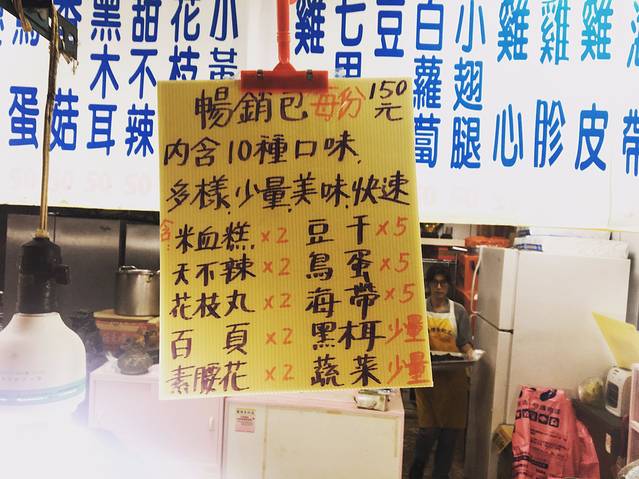 鳥蛋
香菇
黑木耳
甜不辣
花枝
小黃
雞
七里
豆
白蘿蔔
小翅腿
雞心
雞胗
雞皮
海帶
暢銷包 每份 150元
內含10種口味.
多樣.少量.美味.快速
含 米血糕 x2 豆干 x5
天不辣 x2 鳥蛋 x5
花枝丸 x2 海帶 x5
百頁 x2 黑木耳 少量
素腰花 x2 蔬菜 少量